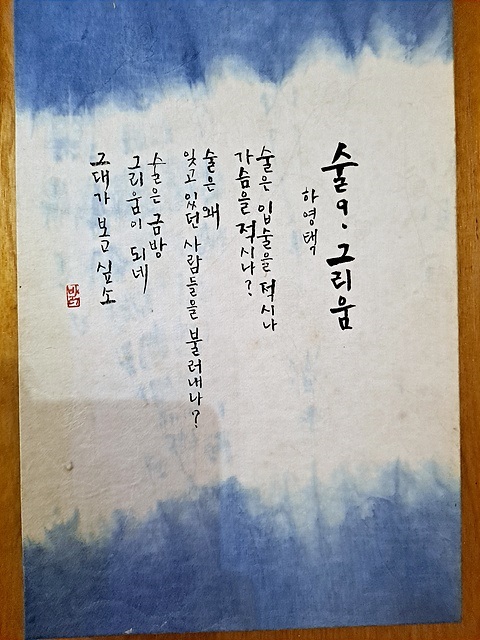 술 9. 그리움
하영택
술은 입술을 적시나
가슴을 적시나?
술은 왜
잊고 있던 사람들을 불러내나?
술은 금방
그리움이 되네
그대가 보고 싶소